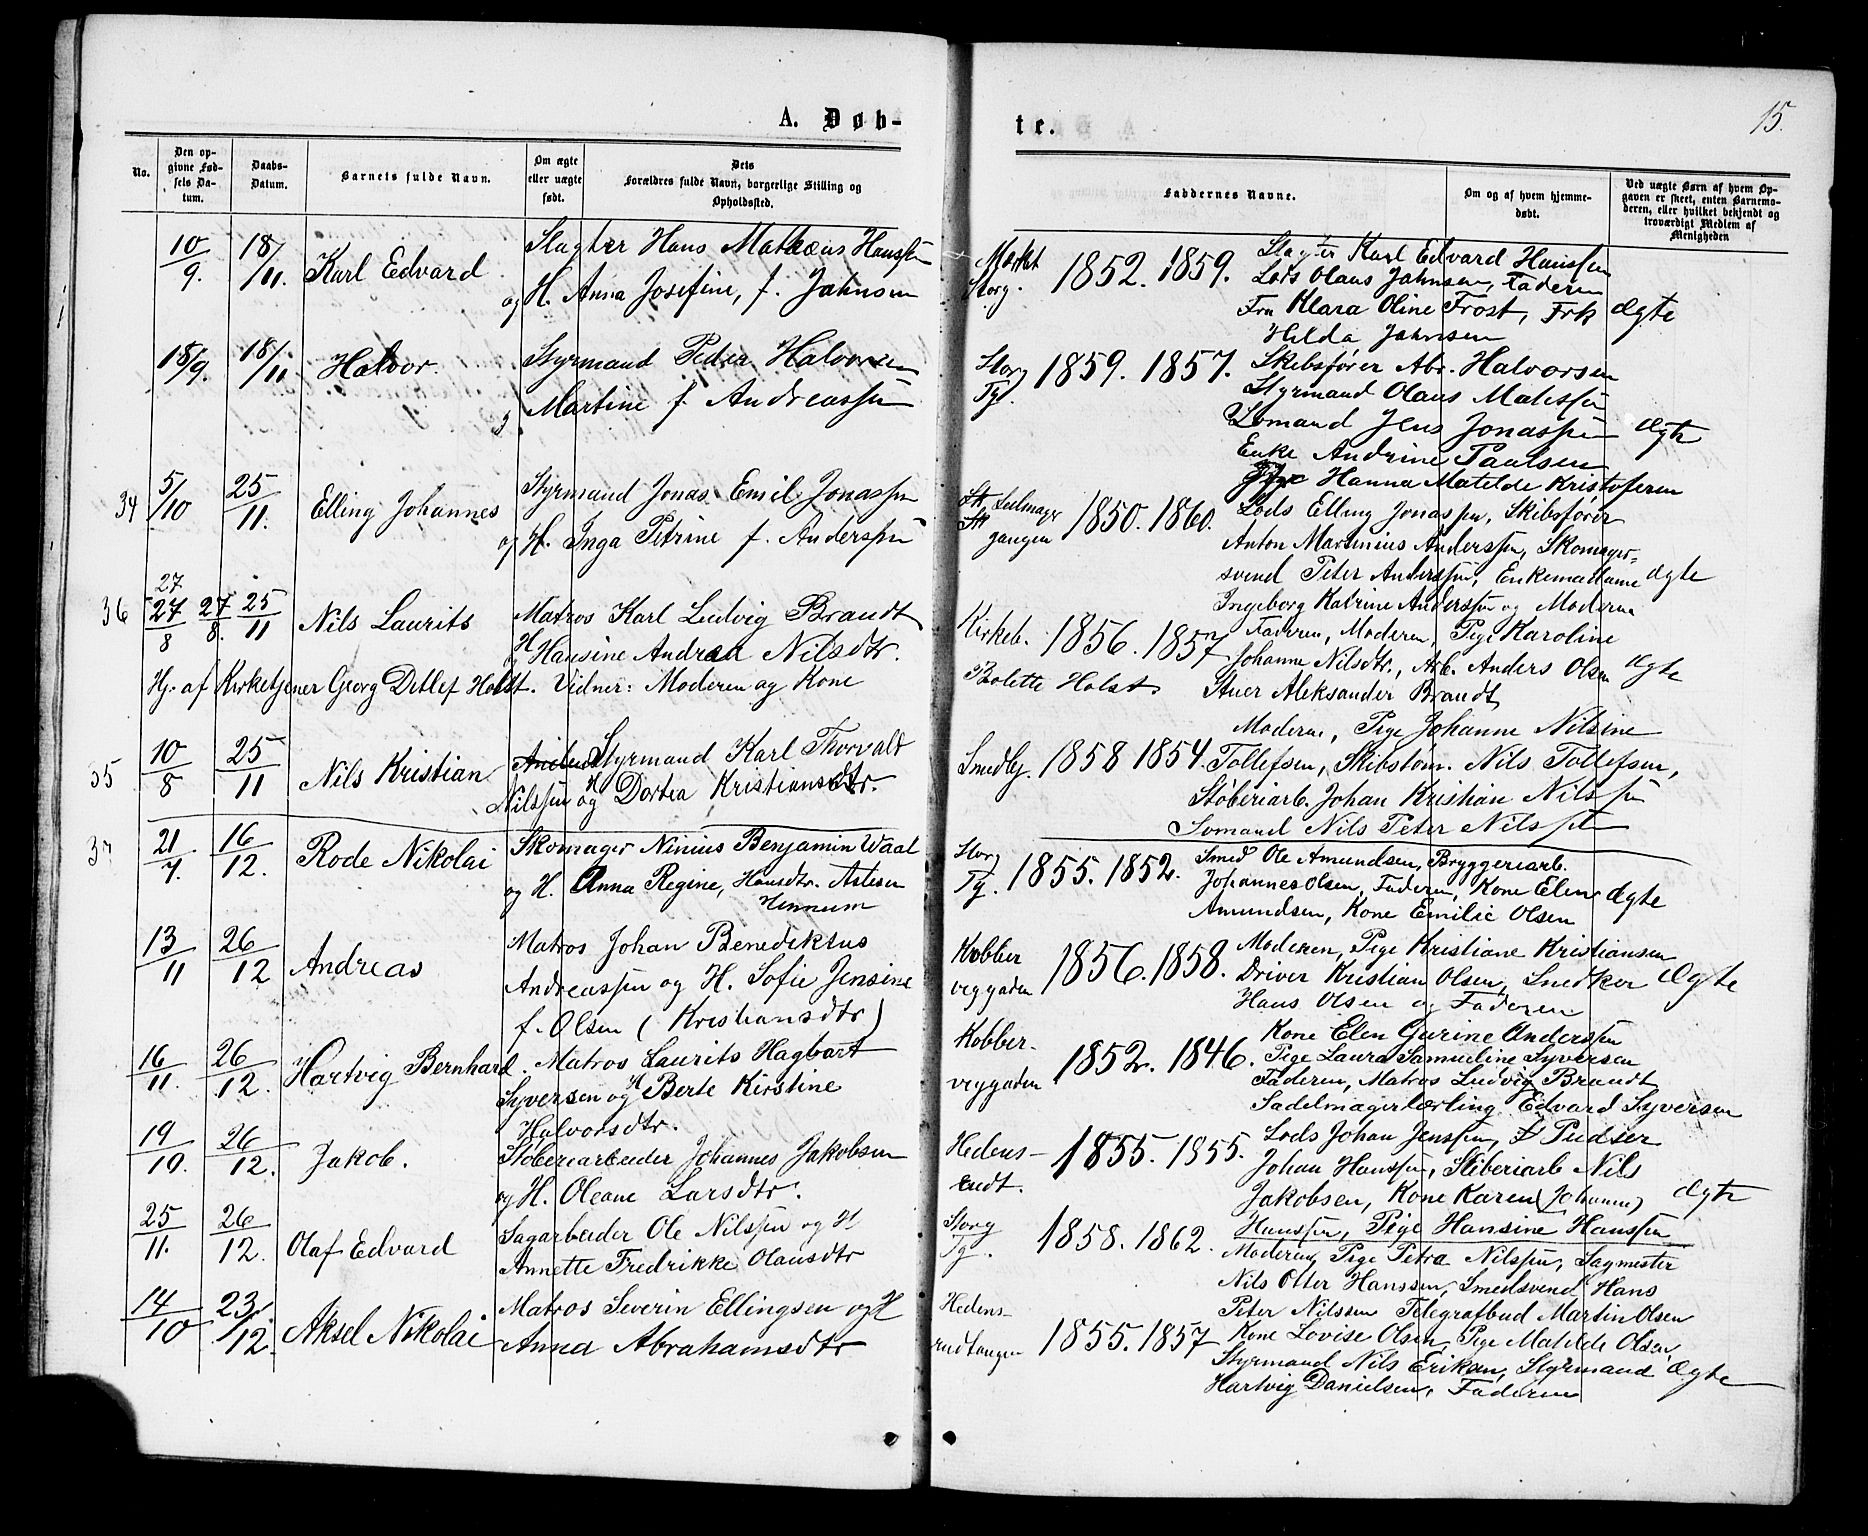 15.
A. Døb-
te.
No.
Den op-
givne Fød-
sels Da-
tum.
Daabs-
Datum.
Barnets fulde Navn.
Om ægte
eller uægte
født.
Dets
Forældres fulde Navn, borgerlige Stilling og
Opholdssted.
Faddernes Navne.
Om og af hvem hjemme-
døbt.
Ved uægte Børn af hvem Op-
gaven er skeet, enten Barnemo-
deren, eller hvilket bekjendt og
troværdigt Medlem af
Menigheden
10/9. 18/11. Karl Edvard
Slagter Hans Mathæus Hanssen
og H. Anna Josefine, f. Jahnsen
Storg. 1852. 1859.
Slagter Karl Edvard Hanssen
Lods Olaus Jahnsen, Faderen
Fru Klara Oline Frost, Frk
Hilda Jahnsen
ægte
18/9. 18/11 Halvor
Styrmand Peder Halvorsen
Martine f Andreassen
Storg
Tg. 1859. 1857.
Skibsfører Abr. Halvorsen
Styrmand Olaus Matissen
Somand Jens Jonassen
Enke Andrine Paulsen
Hanna Matilde Kristofersen
ægte
34 5/10 25/11. Elling Johannes
Styrmand Jonas Emil Jonassen
og H. Inga Petrine f. Anderssen
gangen 1850. 1860.
Lods Elling Jonassen, Skibsfører
Anton Marthinius Anderssen, Skomager-
svend Peter Anderssen, Enkemadame
Ingeborg Katrine Anderssen og Moderen
ægte
36 27 27/8 27/8. 25/11 Nils Laurits
Matros Karl Ludvig Brandt
og H Hansine Andrea Nilsdtr.
Hj. af Kirketjener Georg Detlef Holst. Vidner: Moderen og Kone
Bolette Holst
Kirkeb. 1856. 1857
Faderen, Moderen, Pige Karoline
Johanne Nilsdtr., Arb. Anders Olsen
Stuer Aleksander Brandt
ægte
35 10/8 25/11 Nils Kristian
Styrmand Karl Thorvald
Nilssen og H Dortea Kristiansdtr.
Smedbj. 1858 1854.
Moderen, Pige Johanne Nilsine
Tollefsen, Skibstøm. Nils Tollefsen,
Støberiarb. Johan Kristian Nilssen
Somand Nils Peter Nilssen
37 21/7. 16/12. Rode Nikolai
Skomager Ninius Benjamin Waal
og H. Anna Regine, Hansdtr. Astesen
Hennum
Storg
Tg. 1855. 1852.
Smed Ole Amundsen, Bryggeriarb.
Johannes Olsen, Faderen, Kone Elen
Amundsen, Kone Emilie Olsen
ægte
13/11 26/12 Andreas
Matros Johan Benediktus
Andreassen og H. Sofie Jensine
f. Olsen (Kristiansdtr)
Kobber
veggaden 1856. 1858.
Moderen, Pige Kristiane Kristiansen
Driver Kristian Olsen, Snedker
Hans Olsen og Faderen
Ægte
16/11. 26/12. Hartvig Bernhard.
Matros Laurits Hagbart
Syversen og H Berte Kirstine
Halvorsdtr.
Kobber-
veggaden 1852. 1846.
Kone Elen Gurine Anderssen
Pige Laura Samueline Syversen
Faderen, Matros Ludvig Brandt
Sadelmagerlærling Edvard Syversen
19/10. 26/12. Jakob.
Støberiarbeider Johannes Jakobsen
og H. Oleane Larsdtr.
Hedens-
rudt. 1855. 1855.
Lods Johan Jenssen,
Johan Hanssen, Støberiarb Nils
Jakobsen, Kone Karen (Johanne)
Hanssen, Pige Hansine Hanssen
ægte
25/11. 26/12. Olaf Edvard
Sagarbeider Ole Nilssen og H
Annette Fredrikke Olausdtr
Storg
Tg. 1858. 1862.
Moderen, Pige Petra Nilssen, Sagmester
Nils Otter Hanssen, Smedsvend Hans
Peter Nilssen Telegrafbud Martin Olsen
14/10 23/12. Aksel Nikolai
Matros Severin Ellingsen og H
Anna Abrahamsdtr
Hedens-
rudtangen 1855. 1857
Kone Lovise Olsen, Pige Matilde Olsen,
Styrmand Nils Eriksen, Styrmand
Hartvig Danielsen, Faderen
Ægte